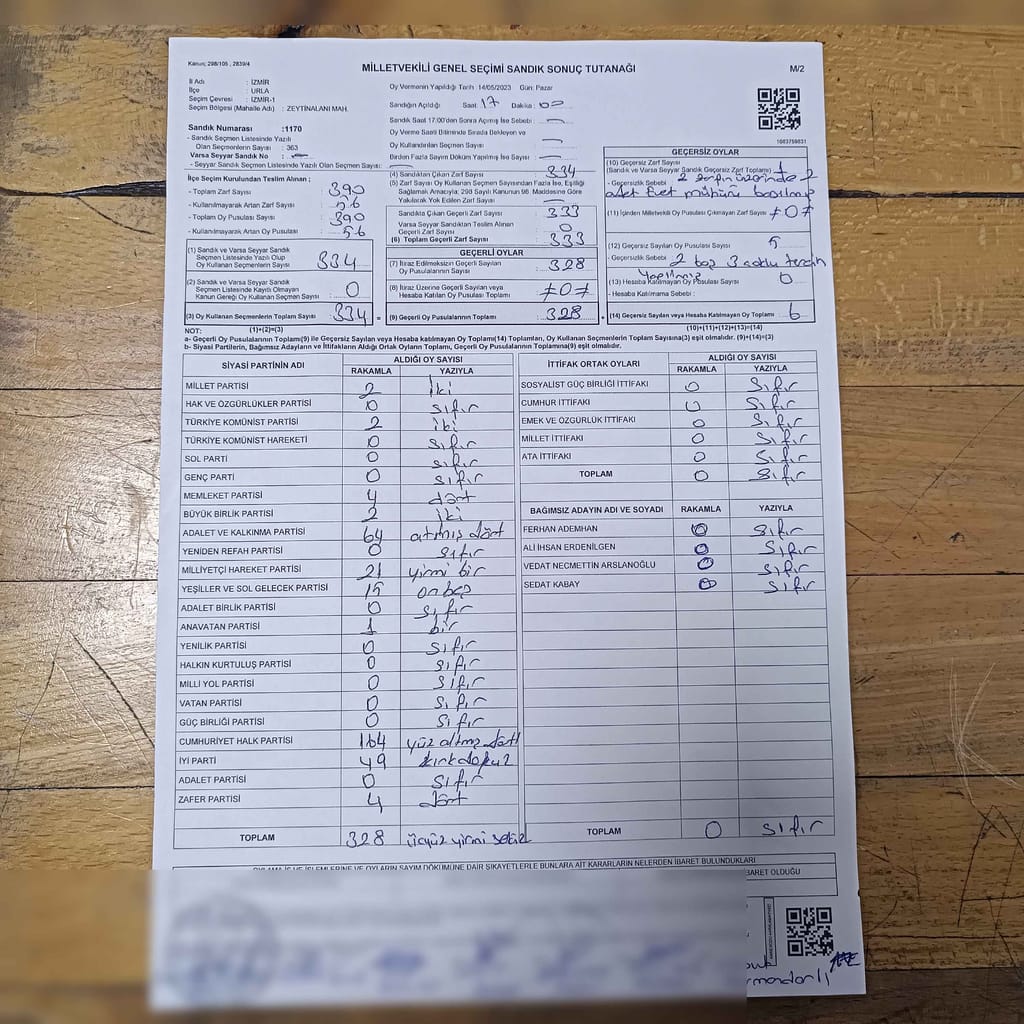 Kanun; 298/105 , 2839/4
MİLLETVEKİLİ GENEL SEÇİMİ SANDIK SONUÇ TUTANAĞI
M/2
İl Adı : İZMİR
İlçe : URLA
Seçim Çevresi : İZMİR-1
Seçim Bölgesi (Mahalle Adı) : ZEYTİNALANI MAH.
Oy Vermenin Yapıldığı Tarih 14/05/2023 Gün: Pazar
Sandığın Açıldığı Saat: 17 Dakika: 00
Sandık Saat 17:00'den Sonra Açılmış İse Sebebi : —
Oy Verme Saati Bitiminde Sırada Bekleyen ve
Oy Kullandırılan Seçmen Sayısı : —
Birden Fazla Sayım Döküm Yapılmış İse Sayısı : —
1083759831
Sandık Numarası :1170
- Sandık Seçmen Listesinde Yazılı
Olan Seçmenlerin Sayısı : 363
Varsa Seyyar Sandık No : —
- Seyyar Sandık Seçmen Listesinde Yazılı Olan Seçmen Sayısı: —
İlçe Seçim Kurulundan Teslim Alınan ;
- Toplam Zarf Sayısı : 390
- Kullanılmayarak Artan Zarf Sayısı : 56
- Toplam Oy Pusulası Sayısı : 390
- Kullanılmayarak Artan Oy Pusulası Sayısı : 56
(1) Sandık ve Varsa Seyyar Sandık
Seçmen Listesinde Yazılı Olup
Oy Kullanan Seçmenlerin Sayısı : 334
(2) Sandık ve Varsa Seyyar Sandık
Seçmen Listesinde Kayıtlı Olmayan
Kanun Gereği Oy Kullanan Seçmen Sayısı : 0
(3) Oy Kullanan Seçmenlerin Toplam Sayısı : 334 =
(1)+(2)=(3)
(4) Sandıktan Çıkan Zarf Sayısı : 334
(5) Zarf Sayısı Oy Kullanan Seçmen Sayısından Fazla İse, Eşitliği
Sağlamak Amacıyla; 298 Sayılı Kanunun 98. Maddesine Göre
Yakılarak Yok Edilen Zarf Sayısı : —
Sandıkta Çıkan Geçerli Zarf Sayısı : 333
Varsa Seyyar Sandıktan Teslim Alınan
Geçerli Zarf Sayısı : 0
(6) Toplam Geçerli Zarf Sayısı : 333
GEÇERLİ OYLAR
(7) İtiraz Edilmeksizin Geçerli Sayılan
Oy Pusulalarının Sayısı : 328
(8) İtiraz Üzerine Geçerli Sayılan veya
Hesaba Katılan Oy Pusulası Toplamı : ≠0≠
(9) Geçerli Oy Pusulalarının Toplamı : 328 +
GEÇERSİZ OYLAR
(10) Geçersiz Zarf Sayısı
(Sandık ve Varsa Seyyar Sandık Geçersiz Zarf Toplamı) : 1
- Geçersizlik Sebebi : 2 zarfın üzerinde 2
adet Evet mührü basılmış
(11) İçinden Milletvekili Oy Pusulası Çıkmayan Zarf Sayısı : ≠0≠
(12) Geçersiz Sayılan Oy Pusulası Sayısı : 5
- Geçersizlik Sebebi : 2 boş 3 çoklu tercih
Yapılmış
(13) Hesaba Katılmayan Oy Pusulası Sayısı : 0
- Hesaba Katılmama Sebebi :
(14) Geçersiz Sayılan veya Hesaba Katılmayan Oy Toplamı : 6
(10)+(11)+(12)+(13)=(14)
NOT:
a- Geçerli Oy Pusulalarının Toplamı(9) ile Geçersiz Sayılan veya Hesaba katılmayan Oy Toplamı(14) Toplamları, Oy Kullanan Seçmenlerin Toplam Sayısına(3) eşit olmalıdır. (9)+(14)=(3)
b- Siyasi Partilerin, Bağımsız Adayların ve İttifakların Aldığı Ortak Oyların Toplamı, Geçerli Oy Pusulalarının Toplamına(9) eşit olmalıdır.
SİYASİ PARTİNİN ADI ALDIĞI OY SAYISI
RAKAMLA YAZIYLA
MİLLET PARTİSİ 2 iki
HAK VE ÖZGÜRLÜKLER PARTİSİ 0 sıfır
TÜRKİYE KOMÜNİST PARTİSİ 2 iki
TÜRKİYE KOMÜNİST HAREKETİ 0 sıfır
SOL PARTİ 0 sıfır
GENÇ PARTİ 0 sıfır
MEMLEKET PARTİSİ 4 dört
BÜYÜK BİRLİK PARTİSİ 2 iki
ADALET VE KALKINMA PARTİSİ 64 atmış dört
YENİDEN REFAH PARTİSİ 0 sıfır
MİLLİYETÇİ HAREKET PARTİSİ 21 yirmi bir
YEŞİLLER VE SOL GELECEK PARTİSİ 15 onbeş
ADALET BİRLİK PARTİSİ 0 sıfır
ANAVATAN PARTİSİ 1 bir
YENİLİK PARTİSİ 0 sıfır
HALKIN KURTULUŞ PARTİSİ 0 sıfır
MİLLİ YOL PARTİSİ 0 sıfır
VATAN PARTİSİ 0 sıfır
GÜÇ BİRLİĞİ PARTİSİ 0 sıfır
CUMHURİYET HALK PARTİSİ 164 yüz altmış dört
İYİ PARTİ 49 kırkdokuz
ADALET PARTİSİ 0 sıfır
ZAFER PARTİSİ 4 dört
TOPLAM 328 üçyüz yirmi sekiz
İTTİFAK ORTAK OYLARI ALDIĞI OY SAYISI
RAKAMLA YAZIYLA
SOSYALİST GÜÇ BİRLİĞİ İTTİFAKI 0 sıfır
CUMHUR İTTİFAKI 0 sıfır
EMEK VE ÖZGÜRLÜK İTTİFAKI 0 sıfır
MİLLET İTTİFAKI 0 sıfır
ATA İTTİFAKI 0 sıfır
TOPLAM 0 sıfır
BAĞIMSIZ ADAYIN ADI VE SOYADI RAKAMLA YAZIYLA
FERHAN ADEMHAN 0 sıfır
ALİ İHSAN ERDENİLGEN 0 sıfır
VEDAT NECMETTİN ARSLANOĞLU 0 sıfır
SEDAT KABAY 0 sıfır
TOPLAM 0 sıfır
OYLAMA İŞ VE İŞLEMLERİNE VE OYLARIN SAYIM DÖKÜMÜNE DAİR ŞİKAYETLERLE BUNLARA AİT KARARLARIN NELERDEN İBARET BULUNDUKLARI
BARET OLDUĞU